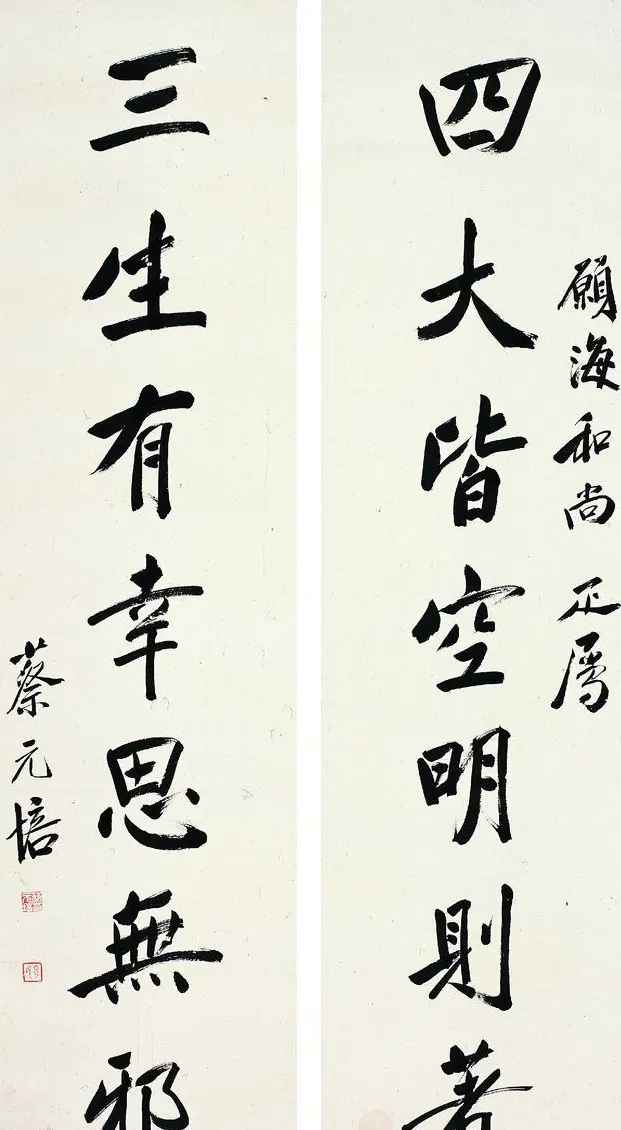 願海和尚 正属
四大皆空明則著
三生有幸思無邪
蔡元培